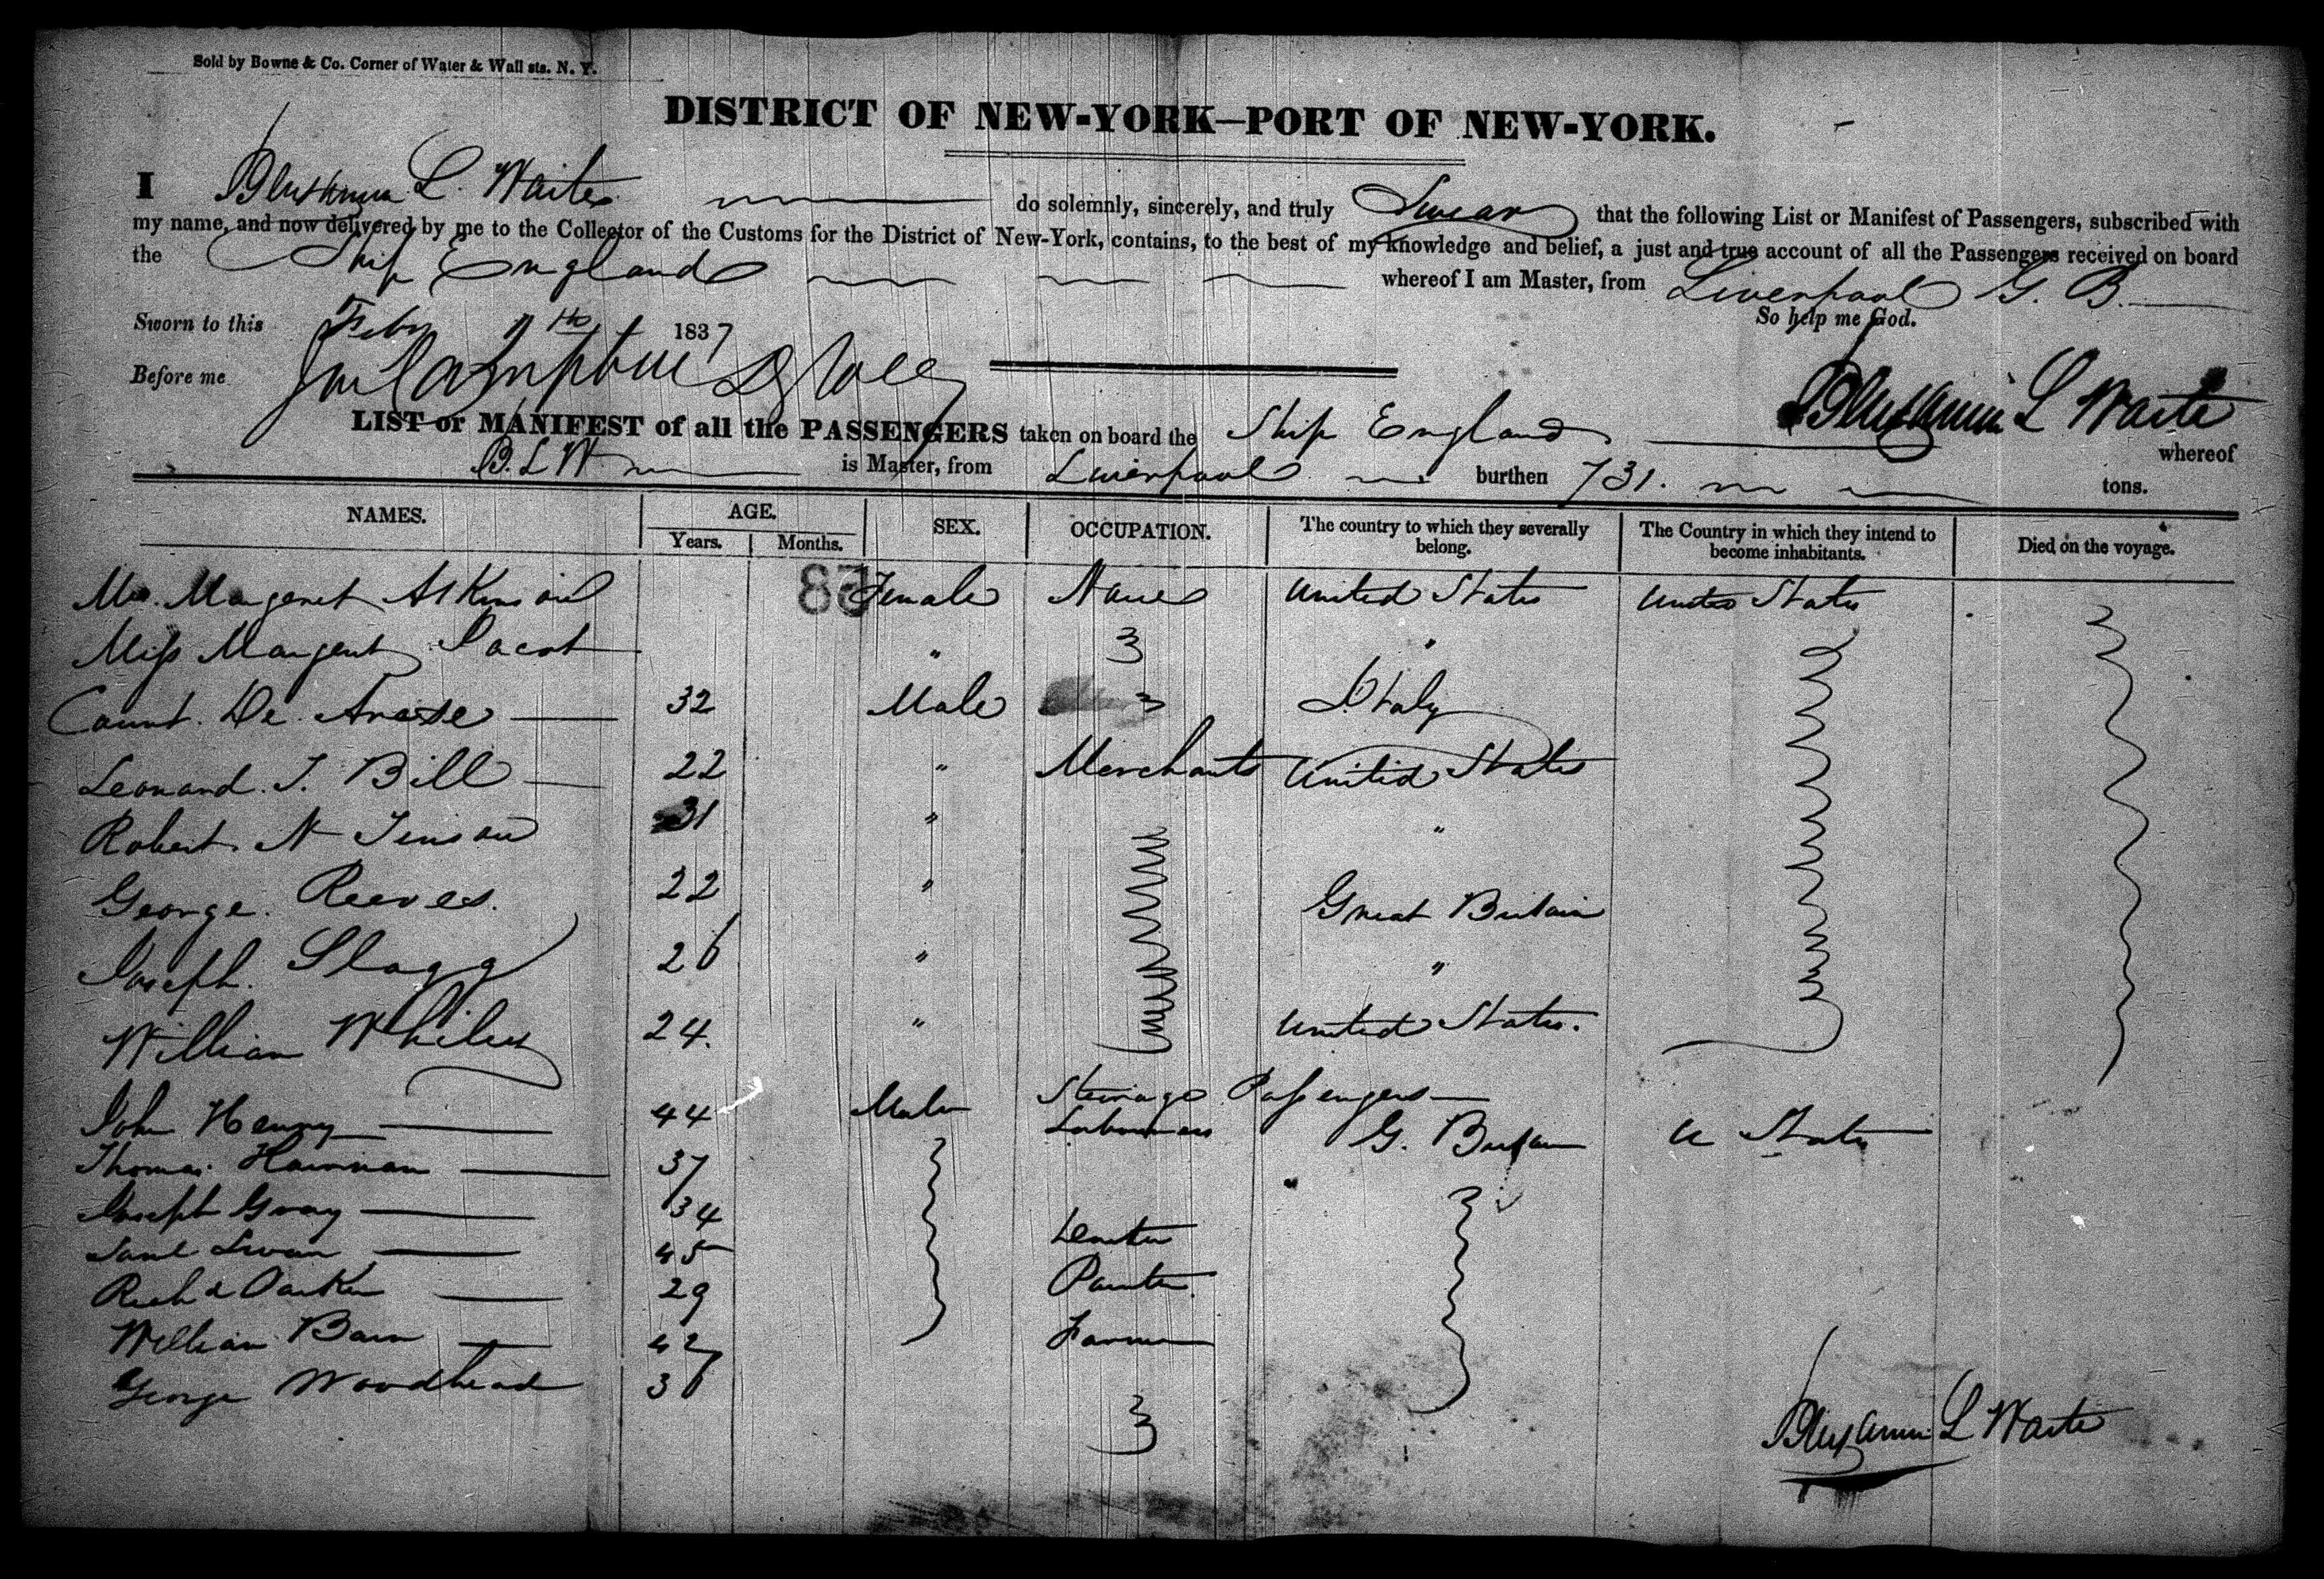 Sold by Bowne & Co. Corner of Water & Wall sts. N. Y.
DISTRICT OF NEW-YORK—PORT OF NEW-YORK.
I Benjamin L. Waite do solemnly, sincerely, and truly Swear that the following List or Manifest of Passengers, subscribed with
my name, and now delivered by me to the Collector of the Customs for the District of New-York, contains, to the best of my knowledge and belief, a just and true account of all the Passengers received on board
the Ship England whereof I am Master, from Liverpool G. B.
So help me God.
Sworn to this Feby 1837
Before me
Benjamin L Waite
LIST or MANIFEST of all the PASSENGERS taken on board the Ship England whereof
B. L W is Master, from Liverpool burthen 731. tons.
NAMES. AGE. SEX. OCCUPATION. The country to which they severally belong. The Country in which they intend to become inhabitants. Died on the voyage.
Years. Months.
28
Margaret Atkinson Female None United States United States
Miss Margaret Jacot " "
Count. De. 32 Male Italy
Leonard. J. Bill 22 " Merchants United States
Robert. N 31 " "
George. Reeves. 22 " Great Britain
Joseph. Slagg 26 " "
William 24. " United States.
Steerage Passengers
John Henry 44 Male Labourers G. Britain U States
Thomas 37 "
Joseph Gray 34
Saml Swan 45
Richd Parker 29 Painter
William Bain 42 Farmer
George Woodhead 36
Benjamin L Waite